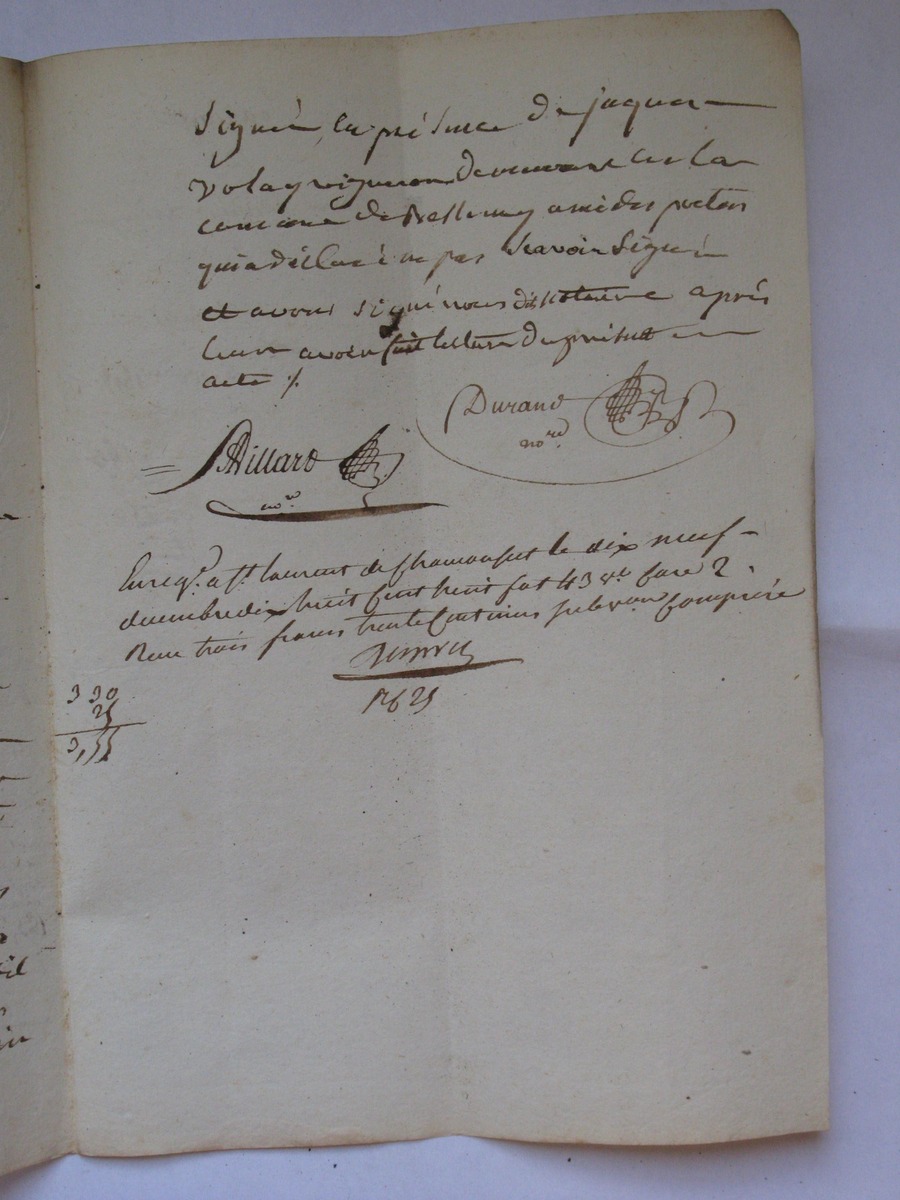 Signé, en présence de jaques
Volay vigneron demeurant en la
comune de Bessenay ami des parties
qui a déclaré ne pas scavoir Signé
et avons signé nous dits Notaire après
leurs avoir fait lecture du présent
acte %
Durand
nore
Billard
nore
Enregé a St laurent de chamousset le dix neuf
décembre dix huit cent huit fol 43 ro case 2
Reçu trois francs trente centimes subvon comprise
3 30
25
3,55